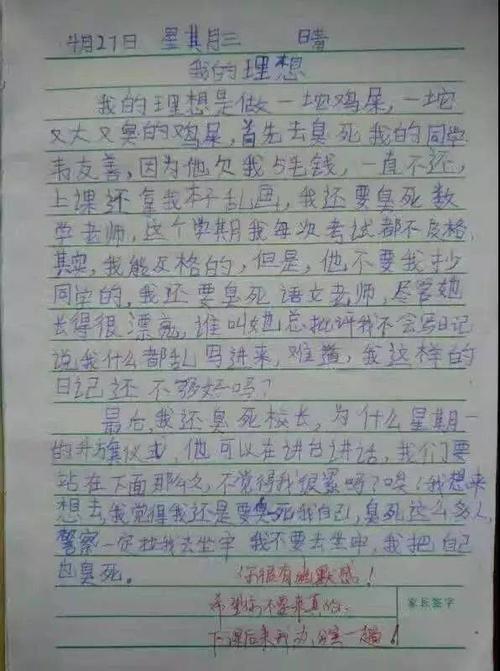 4月27日 星其月三 晴
我的理想
我的理想是做一坨鸡屎,一坨
又大又臭的鸡屎,首先去臭死我的同学
韦友善,因为他欠我5毛钱,一直不还,
上课还拿我本子乱画,我还要臭死数
学老师,这个学期我每次考试都不及格,
其实,我能及格的,但是,他不要我抄
同学的,我还要臭死语文老师,尽管她
长得很漂亮,谁叫她总批评我不会写日记
说我什么都乱写进来,难道,我这样的
日记还不够好吗?
最后,我还臭死校长,为什么星期一
的升旗仪式,他可以在讲台讲话,我们要
站在下面那么久,不觉得我很累吗?唉!我想来
想去,我觉得我还是要臭死我自己,臭死这么多人,
警察一定拉我去坐牢 我不要去坐牢,我把自己
也臭死。
你很有幽默感!
希望你不要来真的。
下课后来办公室一趟!
家长签字